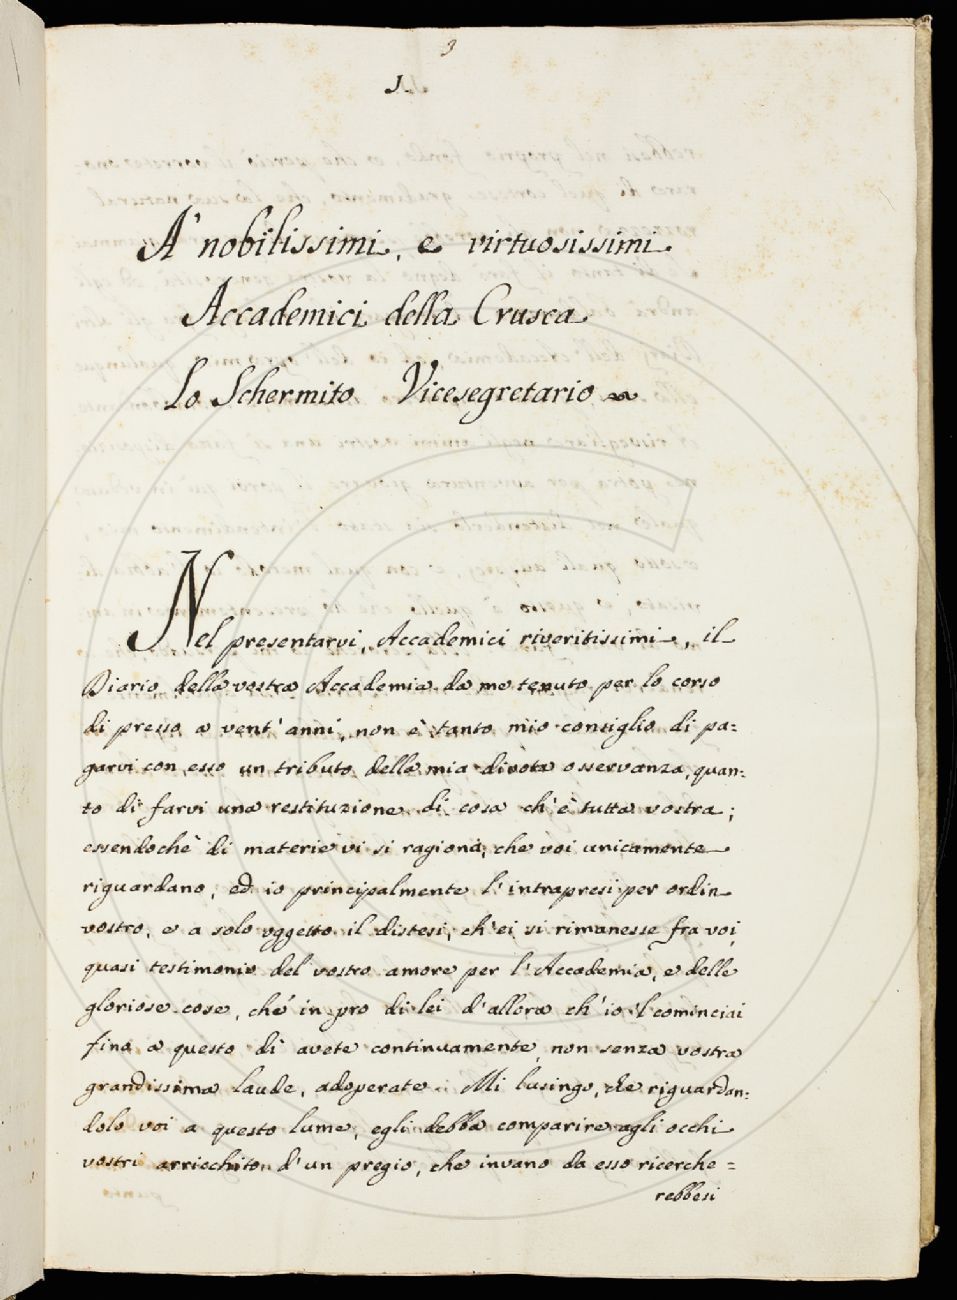 3
1.
A' nobilissimi, e virtuosissimi
Accademici della Crusca
Lo Schermito Vicesegretario
Nel presentarvi, Accademici riveritissimi, il
Diario della vostra Accademia da me tenuto per lo corso
di presso a vent' anni, non è tanto mio consiglio di pa=
garvi con esso un tributo della mia divota osservanza, quan=
to di farvi una restituzione di cosa ch' è tutta vostra;
essendochè di materie vi si ragiona, che voi unicamente
riguardano, ed io principalmente l' intrapresi per ordin
vostro, e a solo oggetto il distesi, ch' ei si rimanesse fra voi
quasi testimonio del vostro amore per l' Accademia, e delle
gloriose cose, che in pro di lei d' allora ch' io 'l cominciai
fino a questo dì avete continuamente, non senza vostra
grandissima laude, adoperate. Mi lusingo, che riguardan=
dolo voi a questo lume, egli debba comparire agli occhi
vostri arricchito d' un pregio, che invano da esso ricerche=
rebbesi